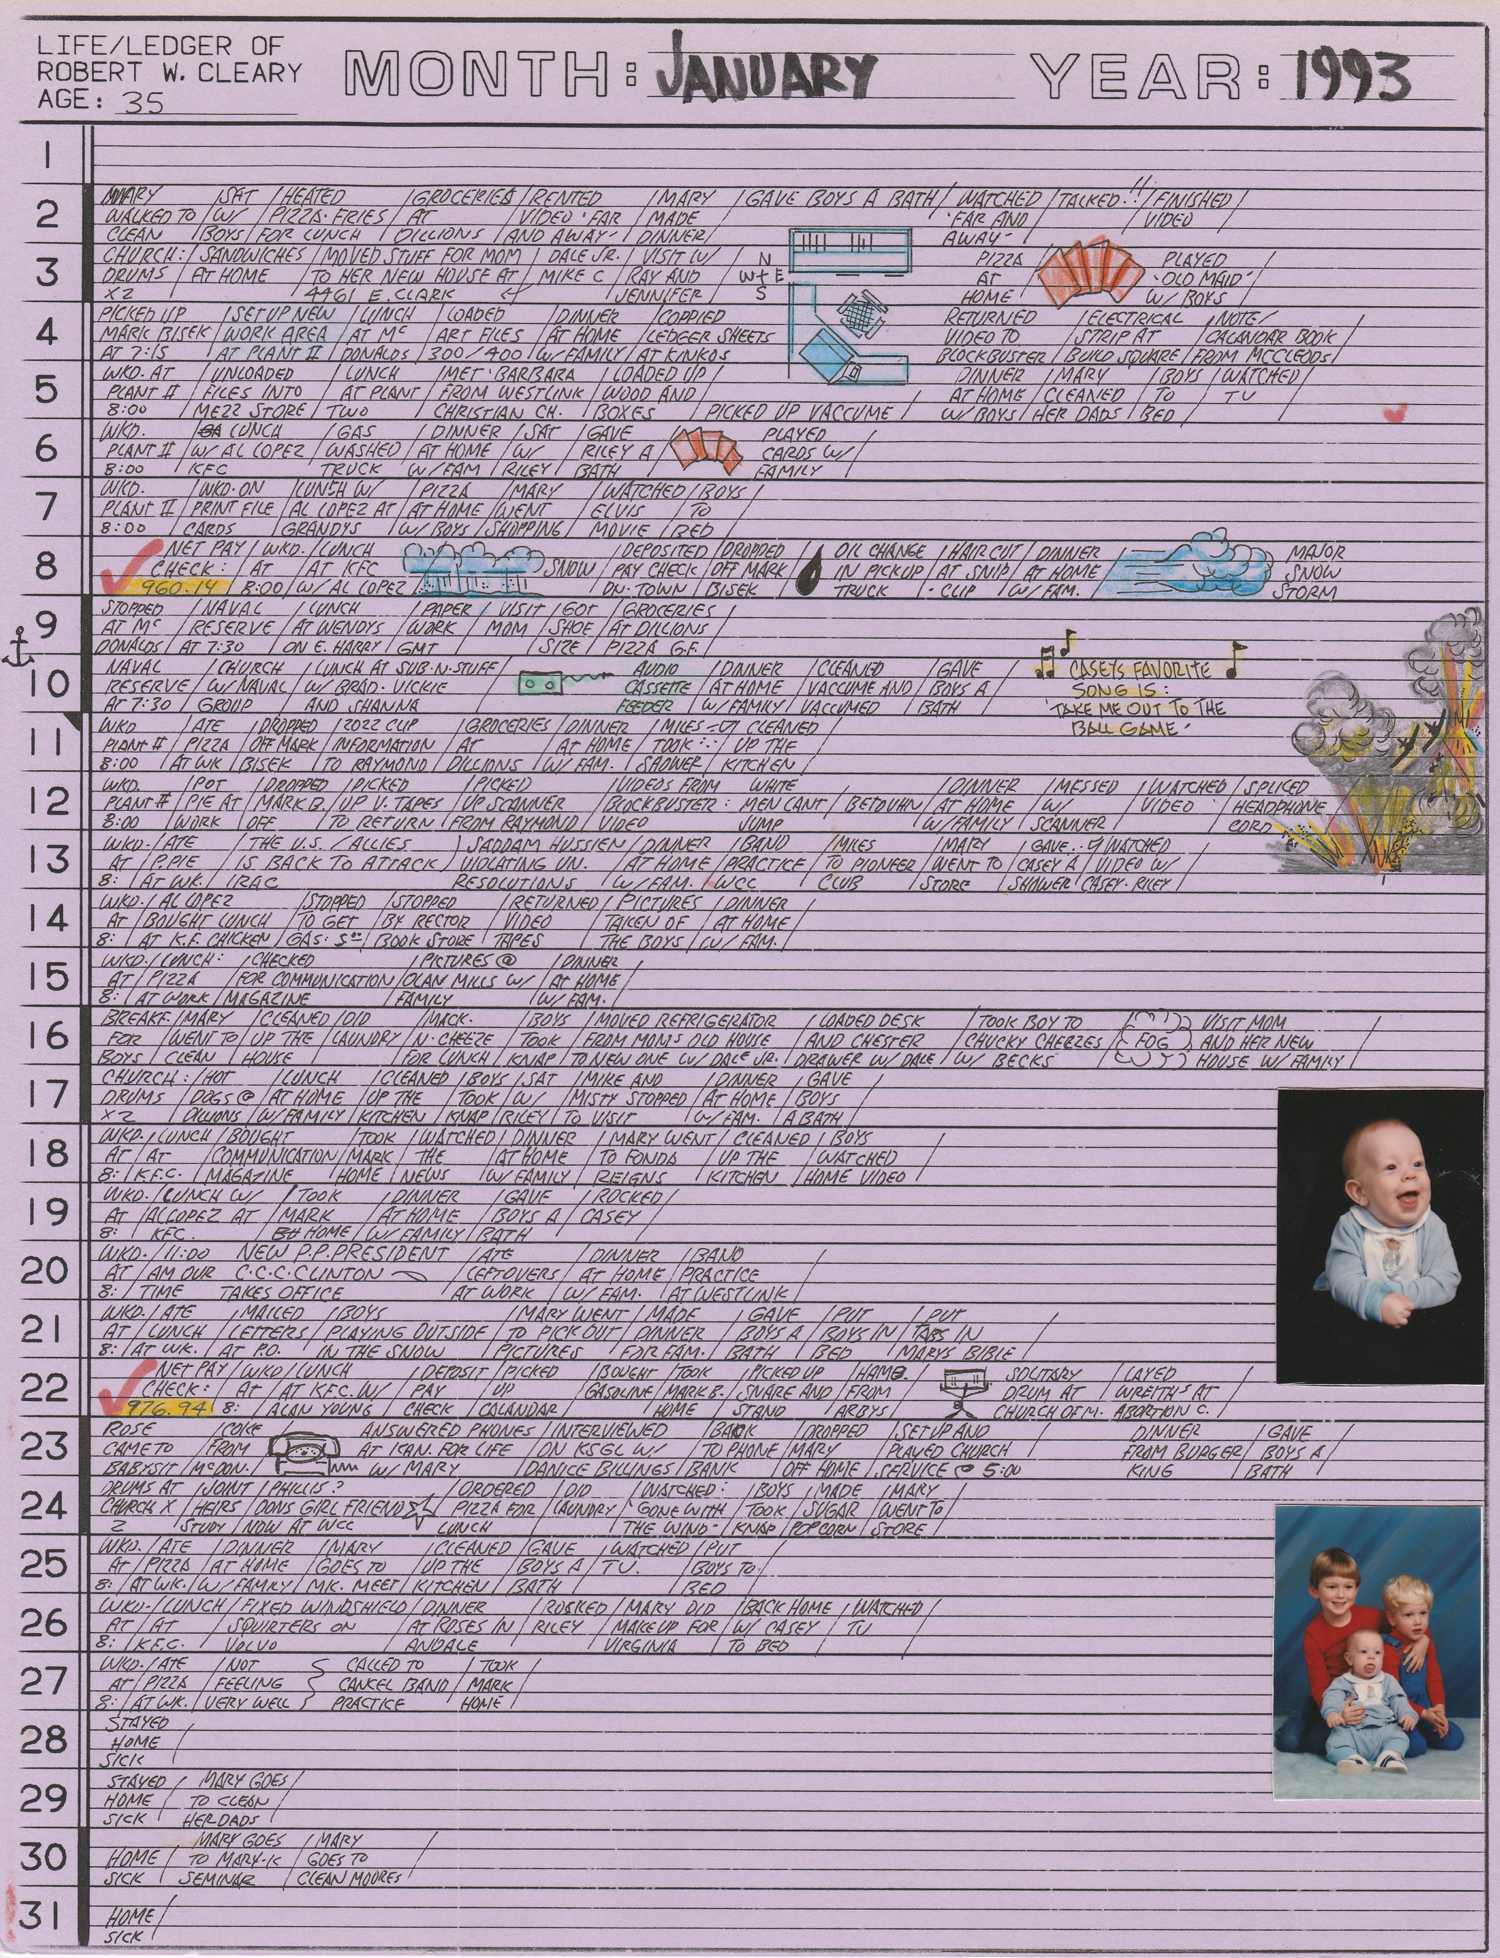 LIFE/LEDGER OF
ROBERT W. CLEARY
AGE: 35
MONTH: JANUARY
YEAR: 1993
1
2
MARY / SAT / HEATED / GROCERIES / RENTED / MARY / GAVE BOYS A BATH / WATCHED / TALKED!! / FINISHED /
WALKED TO / W/ / PIZZA · FRIES / AT / VIDEO 'FAR / MADE / 'FAR AND / VIDEO
CLEAN / BOYS / FOR LUNCH / DILLIONS / AND AWAY' / DINNER / AWAY'
3
CHURCH: / SANDWICHES / MOVED STUFF FOR MOM / DALE JR. / VISIT W/ N PIZZA / PLAYED
DRUMS / AT HOME / TO HER NEW HOUSE AT / MIKE C / RAY AND W+E AT / 'OLD MAID'
X2 / 4461 E. CLARK / JENNIFER / S HOME / W/ BOYS
4
PICKED UP / SET UP NEW / LUNCH / LOADED / DINNER / COPPIED RETURNED / ELECTRICAL / NOTE/
MARK BISEK / WORK AREA / AT Mc / ART FILES / AT HOME / LEDGER SHEETS VIDEO TO / STRIP AT / CALANDAR BOOK
AT 7:15 / AT PLANT II / DONALDS / 300/400 / W/FAMILY / AT KINKOS BLOCKBUSTER / BUILD SQUARE / FROM MCCLEODS /
5
WKD. AT / UNLOADED / LUNCH / MET 'BARBARA / LOADED UP / DINNER / MARY / BOYS / WATCHED /
PLANT II / FILES INTO / AT PLANT / FROM WESTLINK / WOOD AND / AT HOME / CLEANED / TO / TV
8:00 / MEZZ STORE / TWO / CHRISTIAN CH. / BOXES / PICKED UP VACCUME / W/ BOYS / HER DADS / BED /
6
WKD. / LUNCH / GAS / DINNER / SAT / GAVE PLAYED
PLANT II / W/ AL LOPEZ / WASHED / AT HOME / W/ / RILEY A CARDS W/
8:00 / KFC TRUCK / W/ FAM / RILEY / BATH FAMILY
7
WKD. / WKD · ON / LUNCH W/ / PIZZA / MARY / WATCHED / BOYS
PLANT II / PRINT FILE / AL LOPEZ AT / AT HOME / WENT / ELVIS / TO
8:00 / CARDS / GRANDYS / W/ BOYS / SHOPPING / MOVIE / BED
8
NET PAY / WKD. / LUNCH / DEPOSITED / DROPPED OIL CHANGE / HAIR CUT / DINNER MAJOR
CHECK: / AT / AT KFC SNOW / PAY CHECK / OFF MARK IN PICKUP / AT SNIP / AT HOME SNOW
960.14 / 8:00 / W/ AL LOPEZ DN · TOWN / BISEK TRUCK / · CLIP / W/ FAM. STORM
9
STOPPED / NAVAL / LUNCH / PAPER / VISIT / GOT / GROCERIES
AT Mc / RESERVE / AT WENDYS / WORK / MOM / SHOE / AT DILLIONS
DONALDS / AT 7:30 / ON E. HARRY / GMT / SIZE / PIZZA G.F.
10
NAVAL / CHURCH / LUNCH AT SUB·N·STUFF AUDIO / DINNER / CLEANED / GAVE CASEYS FAVORITE
RESERVE / W/ NAVAL / W/ BRAD · VICKIE CASSETTE / AT HOME / VACCUME AND / BOYS A SONG IS:
AT 7:30 / GROUP / AND SHANNA FEEDER / W/ FAMILY / VACCUMED / BATH 'TAKE ME OUT TO THE
BALL GAME'
11
WKD / ATE / DROPPED / 2022 CLIP / GROCERIES / DINNER / MILES / CLEANED
PLANT II / PIZZA / OFF MARK / INFORMATION / AT / AT HOME / TOOK / UP THE
8:00 / AT WK / BISEK / TO RAYMOND / DILLIONS / W/ FAM. / SAOWER / KITCHEN
12
WKD. / POT / DROPPED / PICKED / PICKED / VIDEOS FROM WHITE / DINNER / MESSED / WATCHED / SPLICED
PLANT II / PIE AT / MARK B. / UP V. TAPES / UP SCANNER / BLOCKBUSTER: MEN CANT / BETDUHN / AT HOME / W/ / VIDEO / HEADPHONE
8:00 / WORK / OFF / TO RETURN / FROM RAYMOND / VIDEO JUMP W/ FAMILY / SCANNER / CORD
13
WKD. / ATE / THE U.S. / ALLIES / SADDAM HUSSIEN / DINNER / BAND / MILES / MARY / GAVE / WATCHED
AT / P.PIE / IS BACK TO ATTACK / VIOLATING UN. / AT HOME / PRACTICE / TO PIONEER / WENT TO / CASEY A / VIDEO W/
8: / AT WK. / IRAC RESOLUTIONS / W/ FAM. / WCC / CLUB / STORE / SHOWER / CASEY · RILEY /
14
WKD. / AL LOPEZ / STOPPED / STOPPED / RETURNED / PICTURES / DINNER
AT / BOUGHT LUNCH / TO GET / BY RECTOR / VIDEO / TAKEN OF / AT HOME
8: / AT K.F. CHICKEN / GAS: 5⁰⁰ / BOOK STORE / TAPES / THE BOYS / W/ FAM. /
15
WKD. / LUNCH: / CHECKED / PICTURES @ / DINNER
AT / PIZZA / FOR COMMUNICATION / OLAN MILLS W/ / AT HOME
8: / AT WORK / MAGAZINE / FAMILY / W/ FAM. /
16
BREAKF. / MARY / CLEANED / DID / MACK · / BOYS / MOVED REFRIGERATOR / LOADED DESK / TOOK BOY TO VISIT MOM
FOR / WENT TO / UP THE / LAUNDRY / N · CHEEZE / TOOK / FROM MOMS OLD HOUSE / AND CHESTER / CHUCKY CHEEZES FOG AND HER NEW
BOYS / CLEAN / HOUSE / FOR LUNCH / KNAP / TO NEW ONE W/ DALE JR. / DRAWER W/ DALE / W/ BECKS HOUSE W/ FAMILY /
17
CHURCH: / HOT / LUNCH / CLEANED / BOYS / SAT / MIKE AND / DINNER / GAVE
DRUMS / DOGS @ / AT HOME / UP THE / TOOK / W/ / MISTY STOPPED / AT HOME / BOYS
X2 / DILLIONS / W/FAMILY / KITCHEN / KNAP / RILEY / TO VISIT / W/ FAM. / A BATH /
18
WKD. / LUNCH / BOUGHT / TOOK / WATCHED / DINNER / MARY WENT / CLEANED / BOYS
AT / AT / COMMUNICATION / MARK / THE / AT HOME / TO FONDA / UP THE / WATCHED
8: / K.F.C. / MAGAZINE / HOME / NEWS / W/ FAMILY / REIGNS / KITCHEN / HOME VIDEO
19
WKD. / LUNCH W/ / TOOK / DINNER / GAVE / ROCKED /
AT / AL LOPEZ AT / MARK / AT HOME / BOYS A / CASEY
8: / KFC. / HOME / W/ FAMILY / BATH
20
WKD. / 11:00 NEW P.P. PRESIDENT / ATE / DINNER / BAND
AT / AM OUR C·C·C·CLINTON / LEFTOVERS / AT HOME / PRACTICE
8: / TIME TAKES OFFICE / AT WORK / W/ FAM. / AT WESTLINK /
21
WKD. / ATE / MAILED / BOYS / MARY WENT / MADE / GAVE / PUT / PUT
AT / LUNCH / LETTERS / PLAYING OUTSIDE / TO PICK OUT / DINNER / BOYS A / BOYS IN / TABS IN
8: / AT WK. / AT P.O. / IN THE SNOW / PICTURES / FOR FAM. / BATH / BED / MARYS BIBLE /
22
NET PAY / WKD / LUNCH / DEPOSIT / PICKED / BOUGHT / TOOK / PICKED UP / HAMB. SOLITARY / LAYED
CHECK: / AT / AT KFC. W/ / PAY / UP / GASOLINE / MARK B. / SNARE AND / FROM DRUM AT / WREITHS AT
976.94 / 8: / ALAN YOUNG / CHECK / CALANDAR / HOME / STAND / ARBYS CHURCH OF M. / ABORTION C.
23
ROSE / COKE ANSWERED PHONES / INTERVIEWED / BACK / DROPPED / SET UP AND / DINNER / GAVE
CAME TO / FROM AT KAN. FOR LIFE / ON KSGL W/ / TO PHONE / MARY / PLAYED CHURCH / FROM BURGER / BOYS A
BABYSIT / McDON. W/ MARY / DANICE BILLINGS / BANK / OFF HOME / SERVICE @ 5:00 / KING / BATH
24
DRUMS AT / JOINT / PHILLIS? / ORDERED / DID / WATCHED: / BOYS / MADE / MARY
CHURCH X / HEIRS / DONS GIRL FRIEND PIZZA FOR / LAUNDRY / 'GONE WITH / TOOK / SUGAR / WENT TO
2 / STUDY / NOW AT WCC LUNCH / THE WIND' / KNAP / POPCORN / STORE
25
WKD. / ATE / DINNER / MARY / CLEANED / GAVE / WATCHED / PUT
AT / PIZZA / AT HOME / GOES TO / UP THE / BOYS A / TV. / BOYS TO
8: / AT WK. / W/ FAMILY / MK. MEET / KITCHEN / BATH / BED
26
WKD. / LUNCH / FIXED WINDSHIELD / DINNER / ROCKED / MARY DID / BACK HOME / WATCHED
AT / AT / SQUIRTERS ON / AT ROSES IN / RILEY / MAKEUP FOR / W/ CASEY / TV
8: / K.F.C. / VOLVO / ANDALE / VIRGINIA / TO BED
27
WKD. / ATE / NOT CALLED TO / TOOK
AT / PIZZA / FEELING CANCEL BAND / MARK
8: / AT WK. / VERY WELL PRACTICE / HOME
28
STAYED
HOME
SICK
29
STAYED / MARY GOES
HOME / TO CLEAN
SICK / HER DADS
30
MARY GOES / MARY
HOME / TO MARY-K / GOES TO
SICK / SEMINAR / CLEAN MOORES
31
HOME
SICK